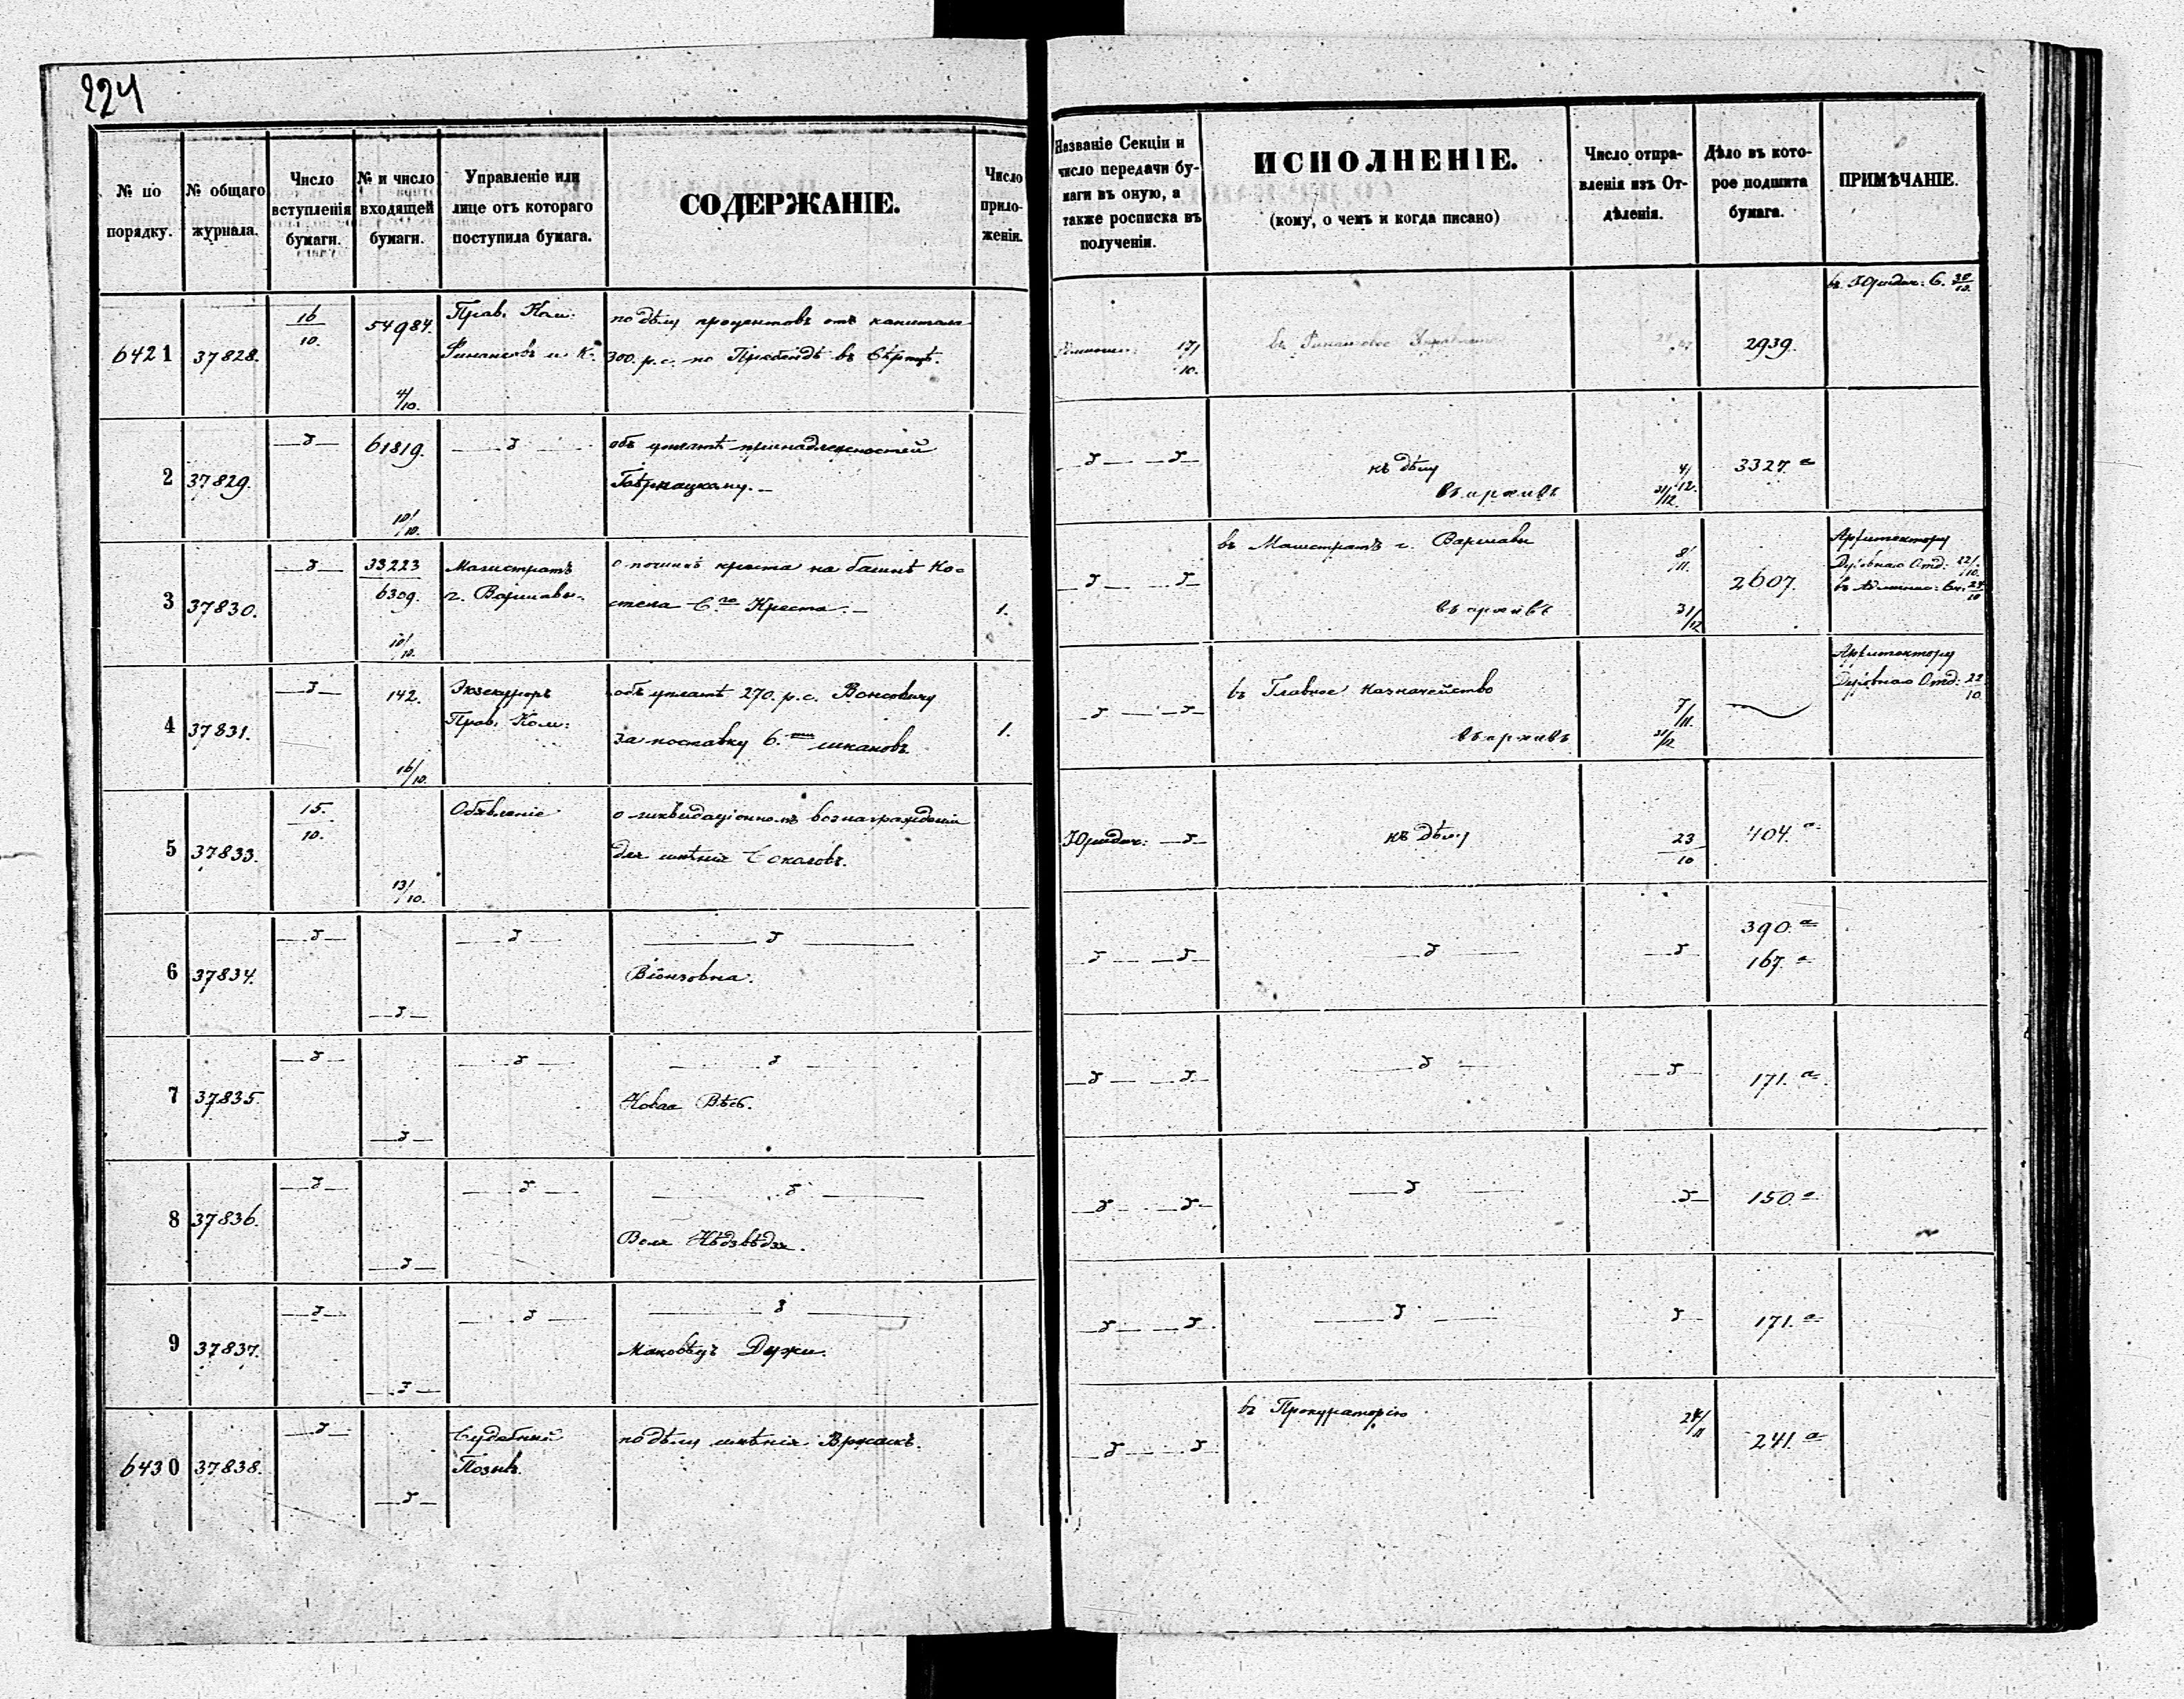 224
№ по порядку.
№ общаго журнала.
Число вступленія бумаги.
№ и число входящей бумаги.
Управленіе или лице отъ котораго поступила бумага.
СОДЕРЖАНІЕ.
Число приложенія.
Названіе Секціи и число передачи бумаги въ оную, а также росписка въ полученіи.
ИСПОЛНЕНІЕ.
(кому, о чемъ и когда писано)
Число отправленія изъ Отдѣленія.
Дѣло въ которое подшита бумага.
ПРИМѢЧАНІЕ.
6421 37828. 16/10. 54984. 4/10. Прав. Ком: Финансовъ и К.
по дѣлу процентовъ отъ капитала
300. р. с. по Пребендѣ въ
17/10. въ Финансовое Управленіе 2939. въ Юридич: С. 30/10.
2 37829. —д— 61819. 10/10. —д—
объ уплатѣ принадлежностей
—д— —д— къ дѣлу 4/12. 3327. а
въ архивъ 31/12.
3 37830. —д— 33223/6309. 10/10. Магистратъ г. Варшавы.
о починкѣ креста на башнѣ Ко-
стела С.го Креста. — 1.
—д— —д— въ Магистратъ г. Варшавы 8/11. 2607.
въ архивъ 31/12
Архитектору
Духовнаго Отд: 22/10.
4 37831. —д— 142. 16/10. Экзекуторъ Прав. Ком:
объ уплатѣ 270. р. с. Вонсовичу
за поставку 6.ти шкаповъ. 1.
—д— —д— въ Главное Казначейство 7/11.
въ архивъ 31/12
Архитектору
Духовнаго Отд: 22/10.
5 37833. 15./10. 13/10. Объявленіе
о ликвидаціонномъ вознагражденіи
для имѣнія Соколовъ.
Юридич: —д— къ дѣлу 23/10 404. а
6 37834. —д— —д— —д— —д—
—д— —д— —д— —д— 390. а
167. а
7 37835. —д— —д— —д— —д—
Новая Вѣсь.
—д— —д— —д— —д— 171. а
8 37836. —д— —д— —д— —д—
Воля Нѣдзвѣдзя.
—д— —д— —д— —д— 150. а
9 37837. —д— —д— —д— —д—
Маковѣцъ Дужи.
—д— —д— —д— —д— 171. а
6430 37838. —д— —д— Судебный Позывъ.
по дѣлу имѣнія
—д— —д— въ Прокураторію 24/11 241. а